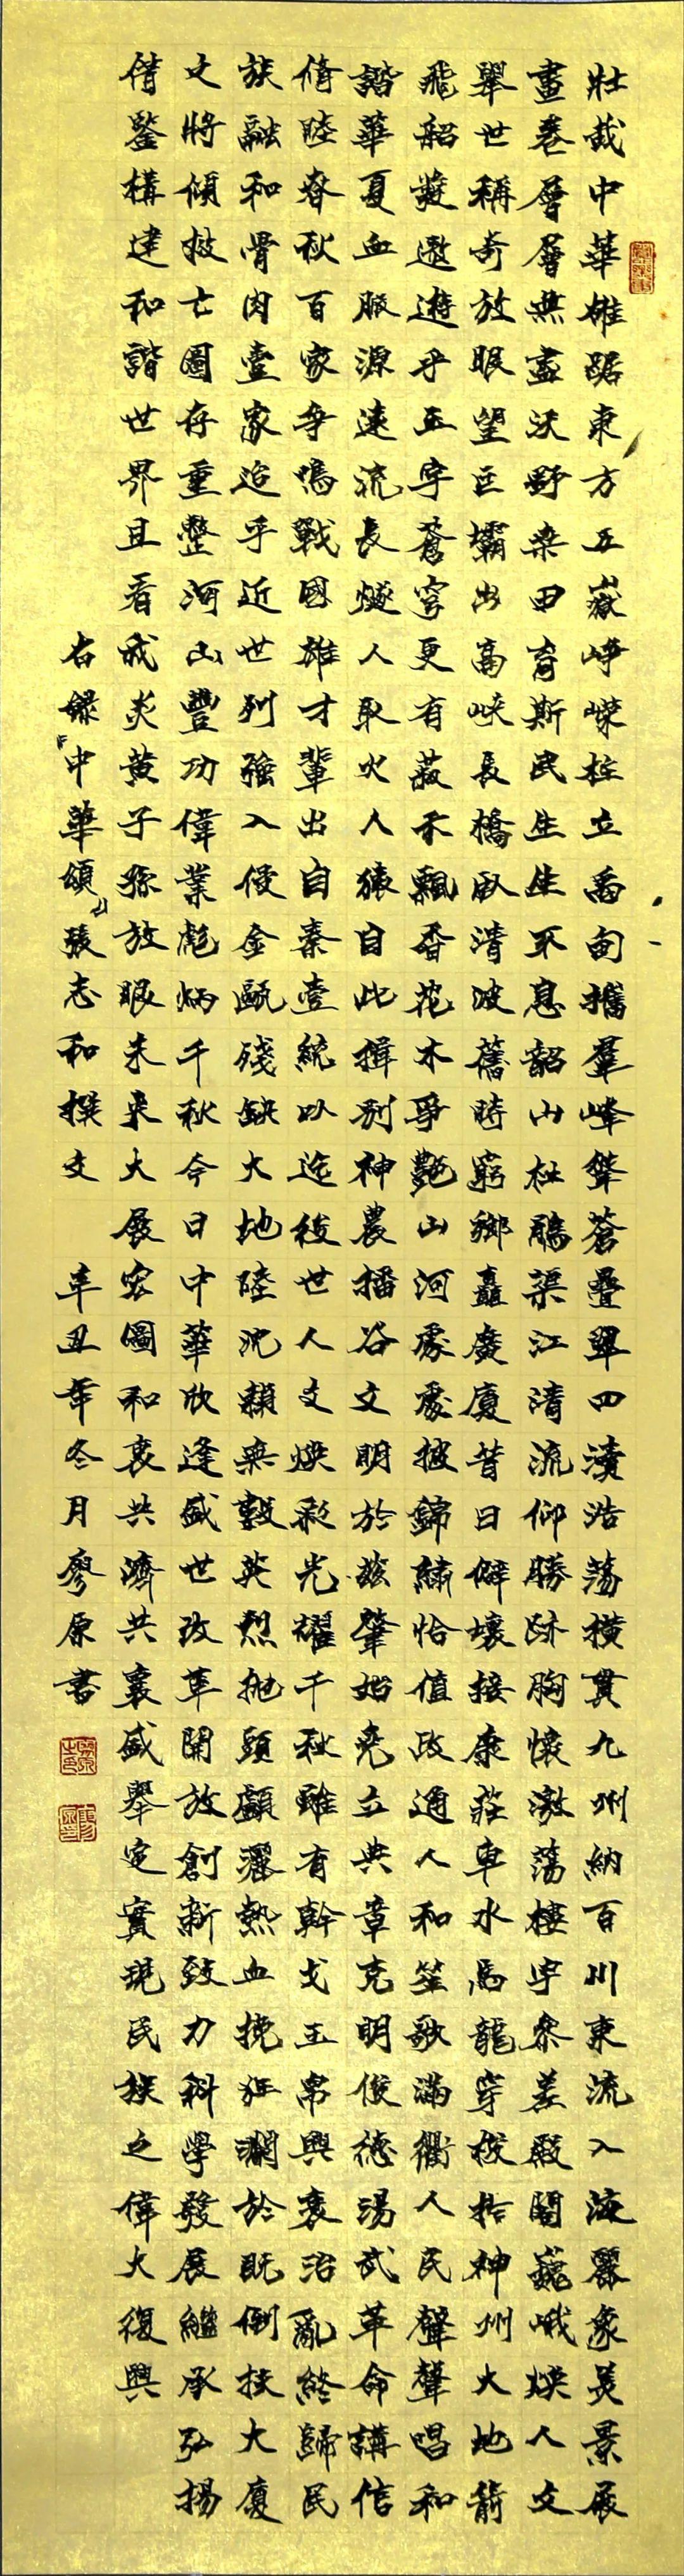 壯哉中華雄踞東方五嶽崢嶸柱立禹甸攜羣峰聳蒼疊翠四瀆浩蕩橫貫九州納百川東流入海器象美景展
畫卷層層無盡沃野桑田育斯民生生不息韶山杜鵑渠江清流仰勝跡胸懷激蕩樓宇參差殿閣巍峨煥人文
舉世稱奇放眼望巨壩出高峽長橋臥清波舊時窮鄉矗廣廈昔日僻壤接康莊車水馬龍穿梭於神州大地箭
飛船載遨遊乎玉宇蒼穹更有菽禾飄香花木爭艷山河處處披錦繡恰值政通人和笙歌滿衢人民聲聲唱和
諧華夏血脈源遠流長燧人取火人猿自此揖別神農播谷文明於茲肇始堯立典章克明俊德湯武革命講信
脩睦春秋百家爭鳴戰國雄才輩出自秦壹統以迄後世人文煥彩光耀千秋雖有幹戈玉帛興衰治亂終歸民
族融和骨肉壹家迨乎近世列強入侵金甌殘缺大地陸沈賴無數英烈拋頭顱灑熱血挽狂瀾於既倒扶大廈
之將傾救亡圖存重整河山豐功偉業彪炳千秋今日中華欣逢盛世改革開放創新致力科學發展繼承弘揚
借鑒構建和諧世界且看我炎黃子孫放眼未來大展宏圖和衷共濟共襄盛舉定實現民族之偉大復興
右錄『中華頌』張志和撰文 辛丑年冬月廖原書